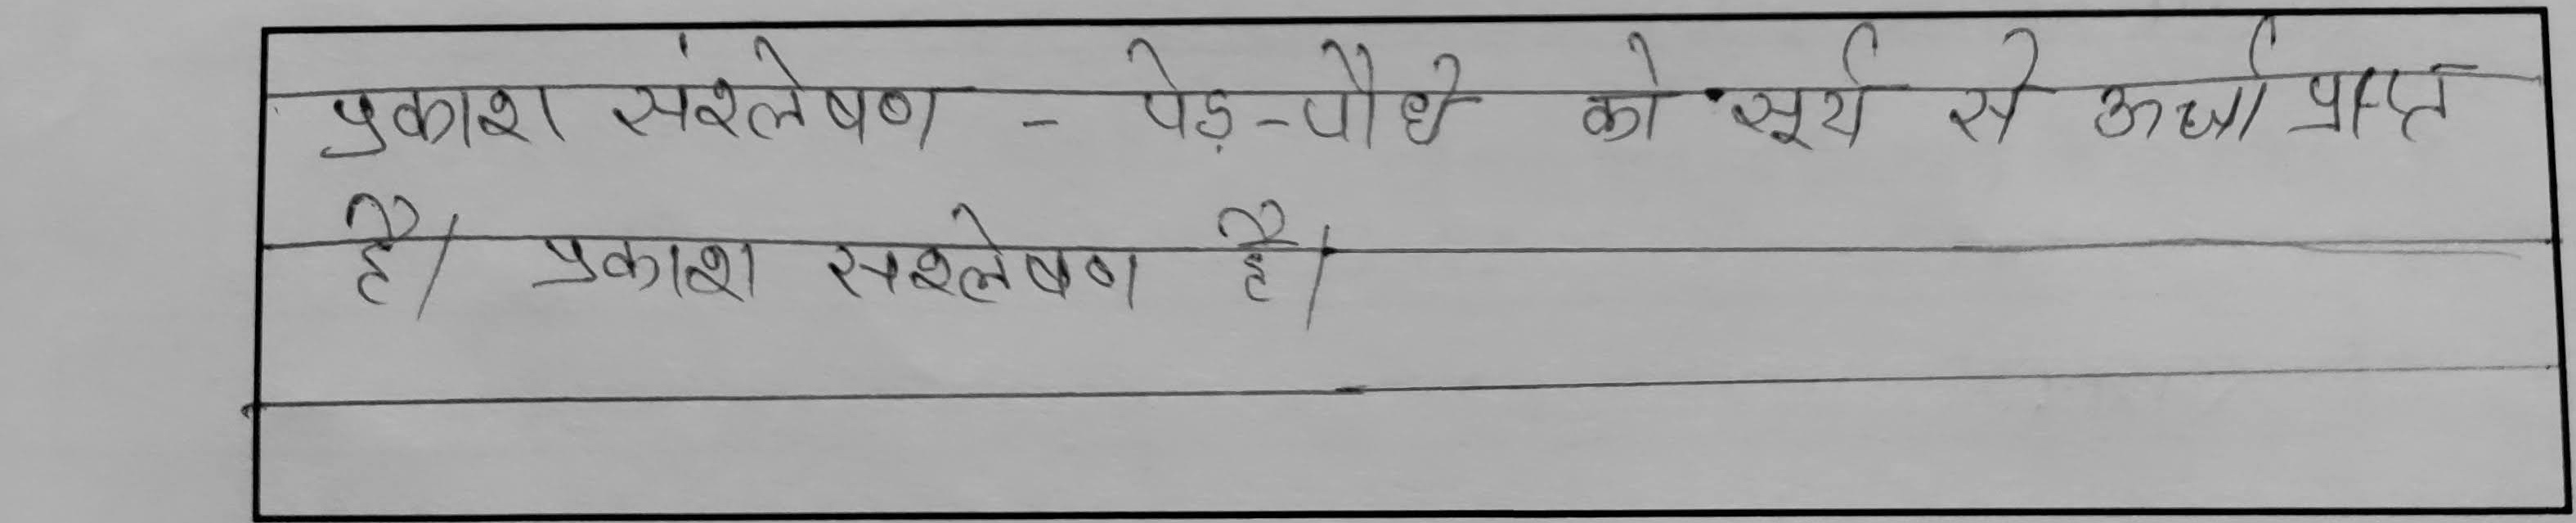 प्रकाश संश्लेषण - पेड़-पौधे को सूर्य से ऊर्जा प्राप्त
है। प्रकाश सश्लेषण है।